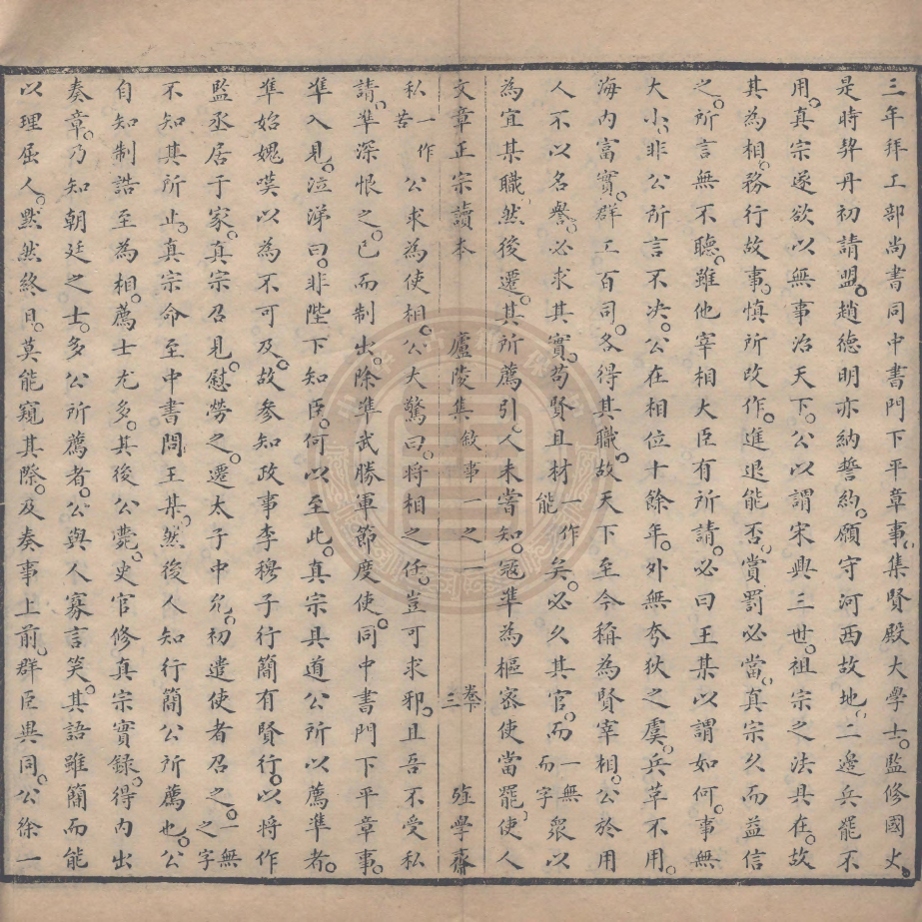 三年拜工部尚書同中書門下平章事集賢殿大學士監修國史
是時契丹初請盟趙德明亦納誓約願守河西故地二邊兵罷不
用真宗遂欲以無事治天下公以謂宋興三世祖宗之法具在故
其為相務行故事慎所改作進退能否賞罰必當真宗久而益信
之所言無不聽雖他宰相大臣有所請必曰王某以謂如何事無
大小非公所言不決公在相位十餘年外無夸狄之虞兵革不用
海內富實群工百司各得其職故天下至今稱為賢宰相公於用
人不以名譽必求其實苟賢且材一作能矣必久其官而一無而字眾以
為宜某職然後遷其所薦引人未嘗知寇準為樞密使當罷使人
文章正宗讀本 廬陵集敘事一之一 卷下 三 殖學齋
私一作苦公求為使相公大驚曰將相之任豈可求邪且吾不受私
請準深恨之已而制出除準武勝軍節度使同中書門下平章事
準入見泣涕曰非陛下知臣何以至此真宗具道公所以薦準者
準始媿嘆以為不可及故參知政事李穆子行簡有賢行以將作
監丞居于家真宗召見慰勞之遷太子中允初遣使者召之一無之字
不知其所止真宗命至中書問王某然後人知行簡公所薦也公
自知制誥至為相薦士尤多其後公薨史官修真宗實錄得內出
奏章乃知朝廷之士多公所薦者公與人寡言笑其語雖簡而能
以理屈人默然終日莫能窺其際及奏事上前群臣異同公徐一